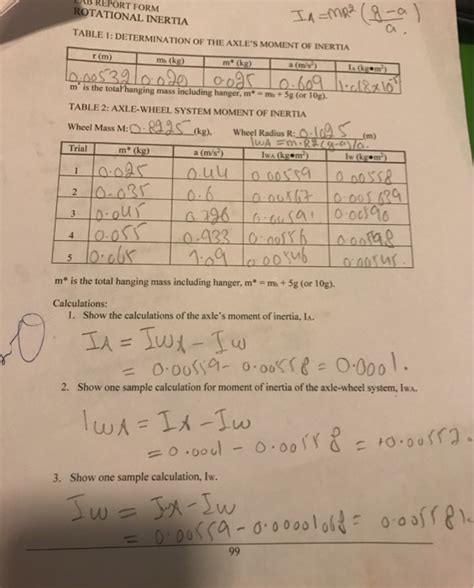 LAB REPORT FORM
ROTATIONAL INERTIA
I_A = mR² (g-a)/a.
TABLE 1: DETERMINATION OF THE AXLE'S MOMENT OF INERTIA
r (m) mₕ (kg) m* (kg) a (m/s²) I_A (kg●m²)
0.00532 0.020 0.025 0.609
m* is the total hanging mass including hanger, m* = mₕ + 5g (or 10g).
TABLE 2: AXLE-WHEEL SYSTEM MOMENT OF INERTIA
Wheel Mass M: 0.8225 (kg), Wheel Radius R: 0.1025 (m)
I_WA = m·R²(g-a)/a.
Trial m* (kg) a (m/s²) I_WA (kg●m²) I_W (kg●m²)
1 0.025 0.44 0.00559 0.00558
2 0.035 0.6 0.00567
3 0.045 0.00591 0.00590
4 0.055 0.933 0.00556
5 0.065 1.09 0.00546 0.00545
m* is the total hanging mass including hanger, m* = mₕ + 5g (or 10g).
Calculations:
1. Show the calculations of the axle's moment of inertia, I_A.
I_A = I_WA - I_W
= 0.00559 - 0.00558 = 0.0001.
2. Show one sample calculation for moment of inertia of the axle-wheel system, I_WA.
I_WA = I_A - I_W
= 0.0001 - 0.00558 =
3. Show one sample calculation, I_W.
I_W = I_A - I_W
= 0.00559 - 0.00001068 = 0.005581.
99